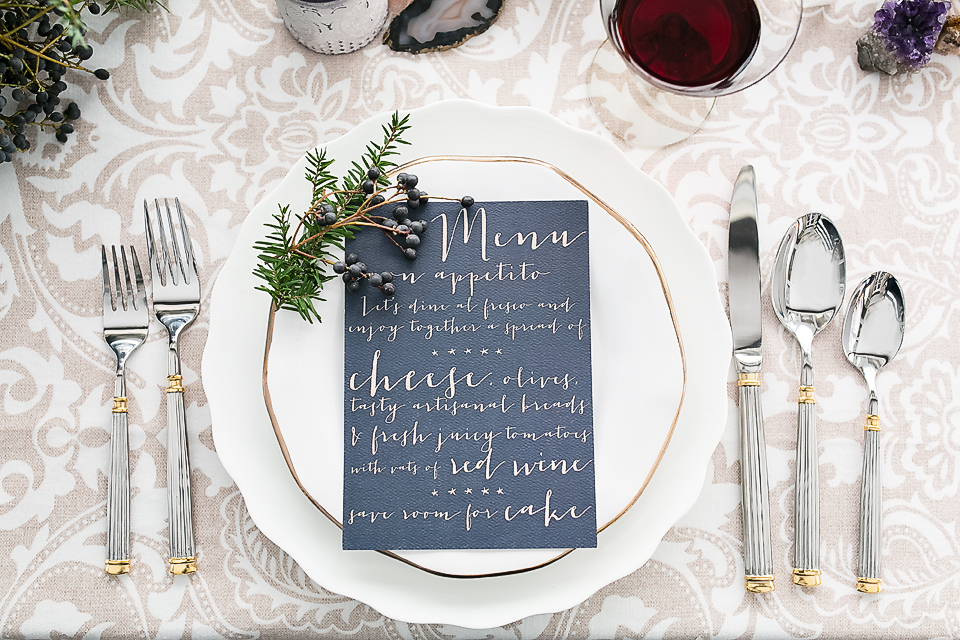 Menu
on appetito
Let's dine al fresco and
enjoy together a spread of
cheese, olives,
tasty artisanal breads
& fresh juicy tomatoes
with vats of red wine
save room for cake